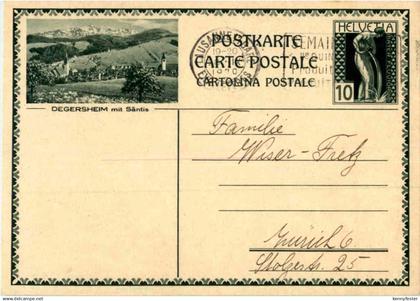 POSTKARTE
CARTE POSTALE
CARTOLINA POSTALE
HELVETIA
10
DEGERSHEIM mit Säntis
Familie
Wiser-Fretz
Zürich 6
Stolzestr. 25